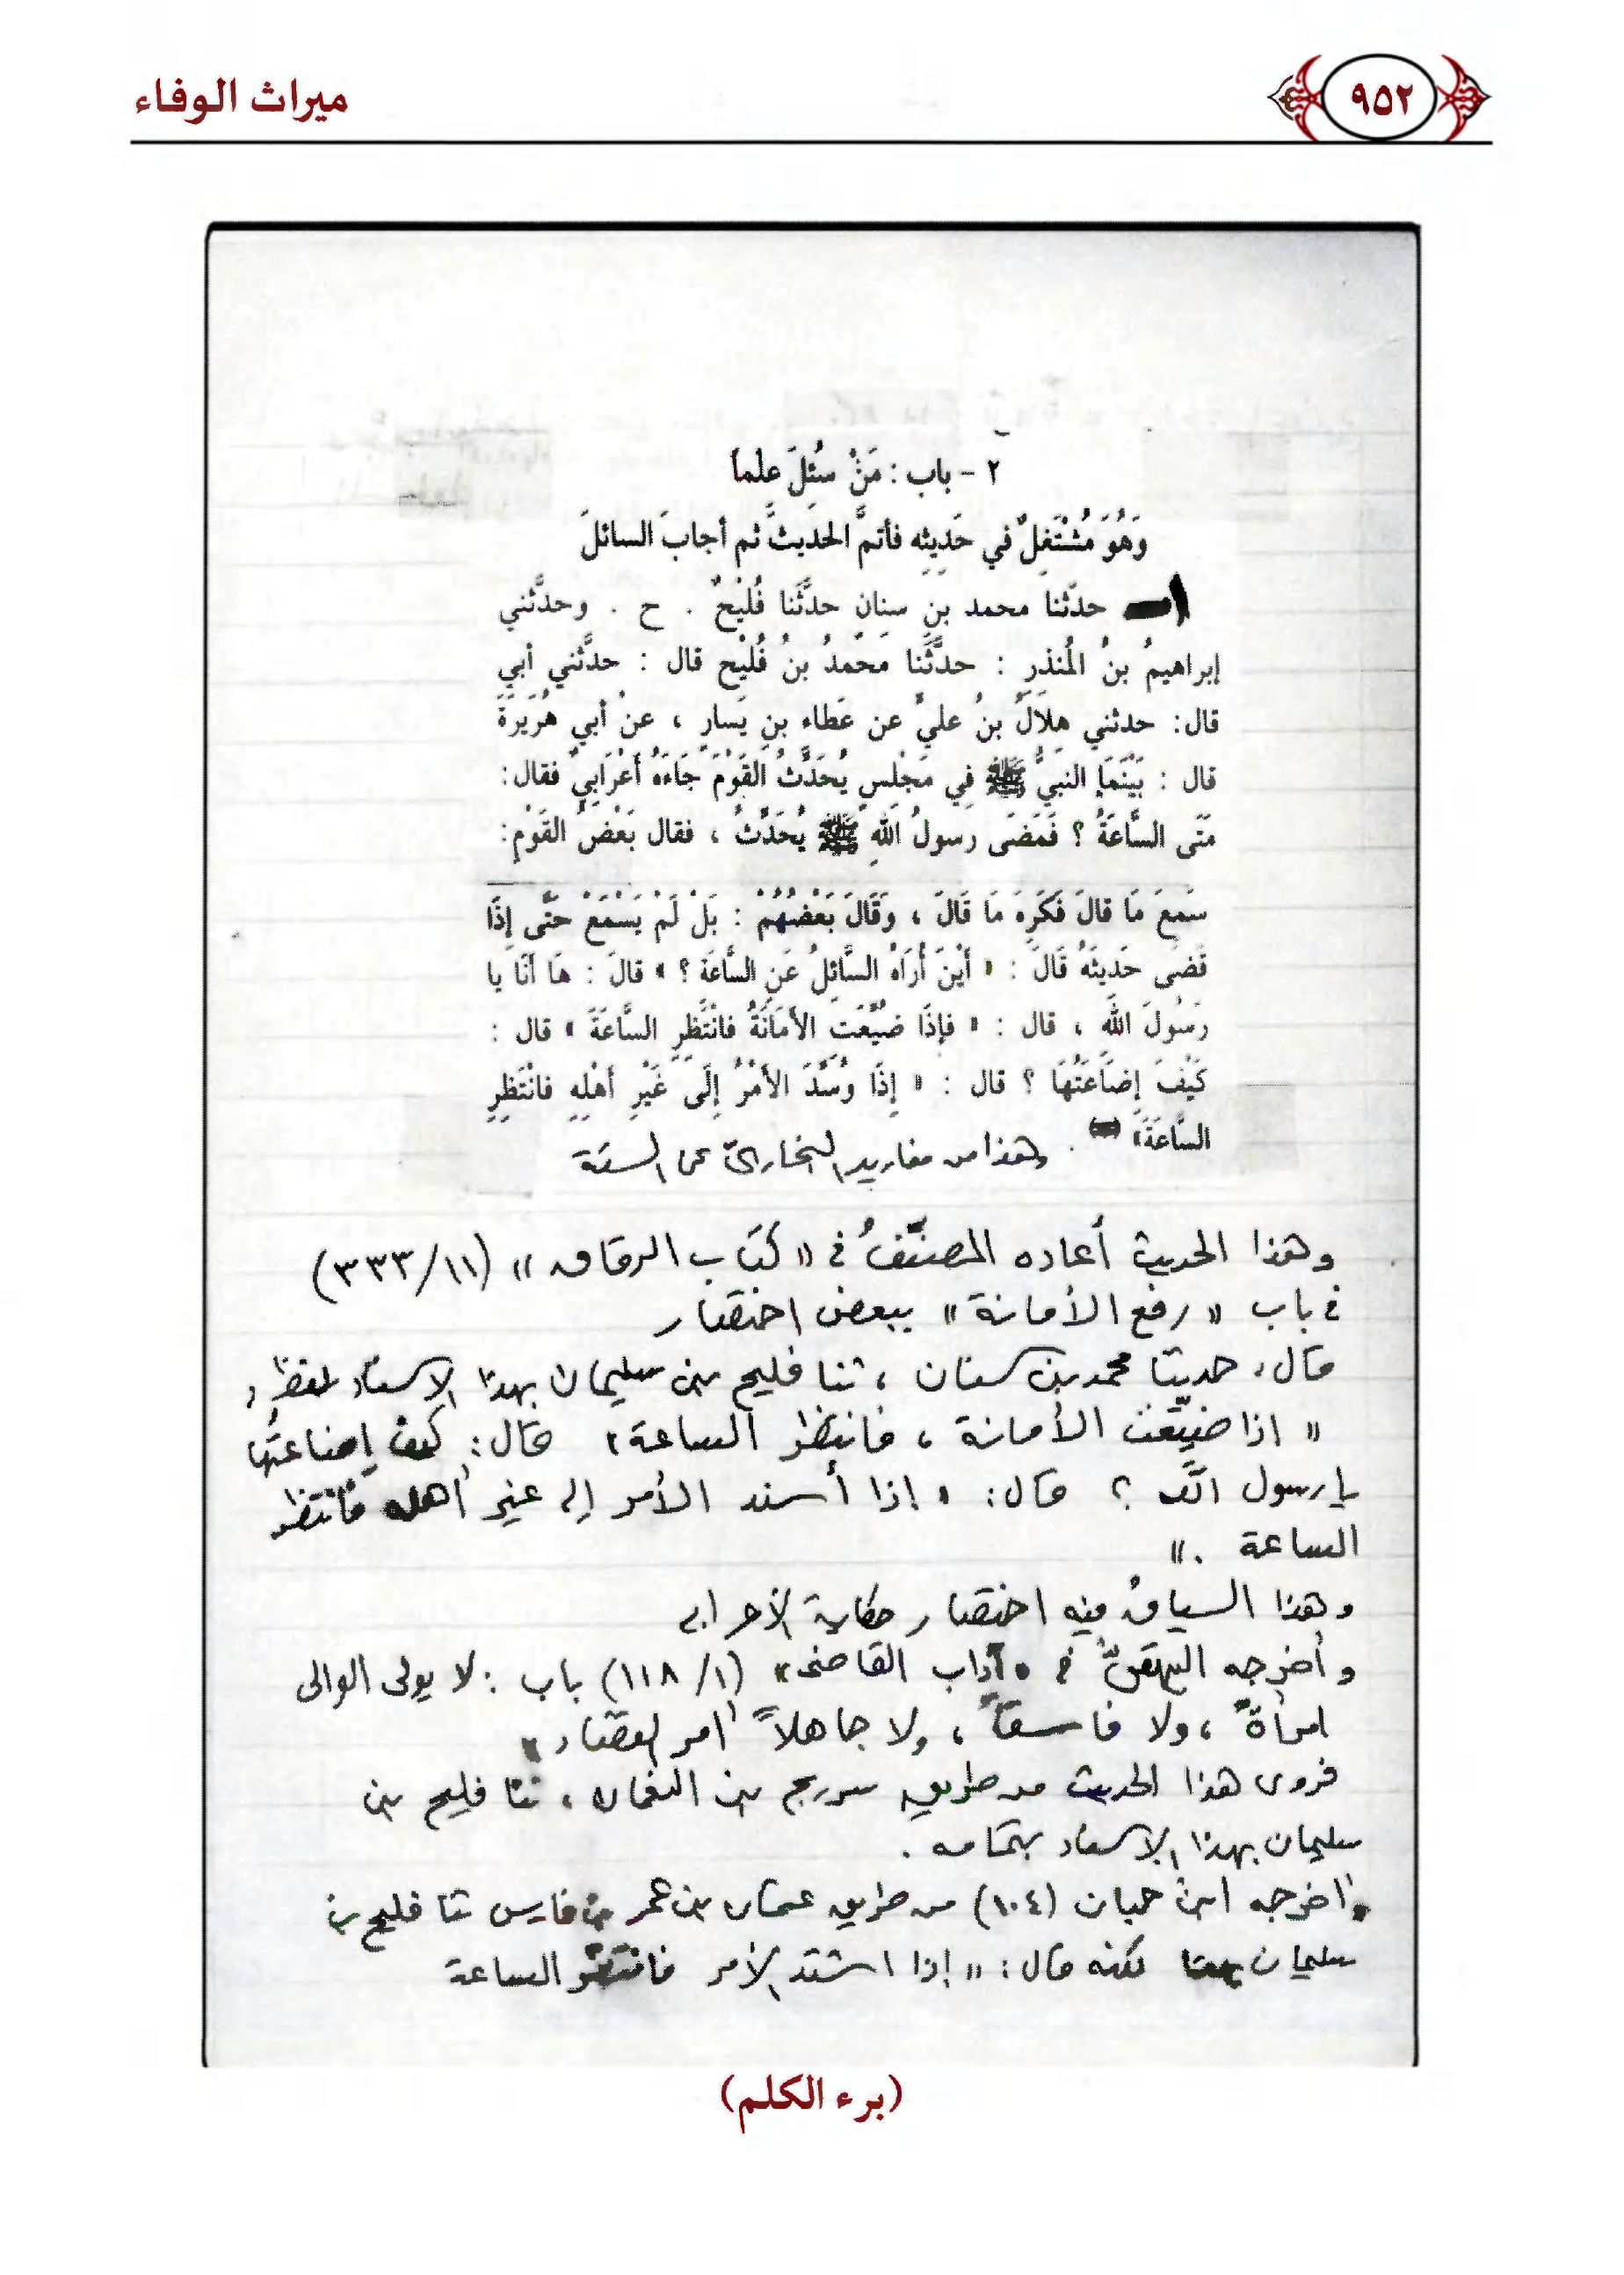 ميراث الوفاء
٩٥٢
٢ - باب : مَنْ سُئِلَ علماً
وَهُوَ مُشْتَغِلٌ في حَدِيثِه فأتمَّ الحديثَ ثم أجابَ السائلَ
حدّثنا محمد بن سِنانٍ حدَّثَنا فُلَيْحٌ . ح . وحدَّثني
إبراهيمُ بنُ المُنذرِ : حدَّثَنا محمدُ بنُ فُلَيْح قال : حدَّثني أبي
قال: حدثني هِلاَلُ بنُ عليٍّ عن عَطاء بنِ يَسارٍ ، عنْ أبي هُرَيرَةَ
قال : بَيْنَمَا النبيُّ ﷺ في مَجْلِسٍ يُحَدِّثُ القَوْمَ جَاءَهُ أعْرَابيٌ فقال:
مَتَى السَّاعَةُ ؟ فَمَضَى رسولُ اللهِ ﷺ يُحَدِّثُ ، فقال بَعْضُ القَوْمِ:
سَمعَ مَا قالَ فَكَرِهَ مَا قَالَ ، وَقَالَ بَعْضُهُمْ : بَلْ لَمْ يَسْمَعْ حَتَّى إِذَا
قَضَى حَدِيثَهُ قَالَ : « أَيْنَ أُرَاهُ السَّائِلُ عَنِ السَّاعَةِ ؟ » قالَ : هَا أنَا يا
رَسُولَ اللهِ ، قال : « فإِذَا ضُيِّعَتِ الأَمَانَةُ فانْتَظِرِ السَّاعَةَ » قال :
كَيْفَ إضَاعَتُهَا ؟ قال : « إذَا وُسِّدَ الأمْرُ إلَى غَيْرِ أهْلِهِ فانْتَظِرِ
السَّاعَةَ» . وهذا من مفاريد البخاريّ عن الستة
وهذا الحديث أعاده المصنِّفُ في « كتاب الرقاق » (١١/ ٣٣٣)
في باب « رفع الأمانة » ببعض اختصار
قال: حدثنا محمد بن سنان ، ثنا فليح بن سليمان بهذا الإسناد بلفظ :
« اذا ضيِّعت الأمانة ، فانتظر الساعة » قال: كيف إضاعتُها
يا رسول الله ؟ قال: « إذا أسند الأمر إلى غير أهله فانتظر
الساعة . »
وهذا السياق فيه اختصار حكاية الأعرابي
وأخرجه البيهقيُّ في «آداب القاضى» (١/ ١١٨) باب : لا يولى الوالى
امرأةً ، ولا فاسقاً ، ولا جاهلاً أمر القضاء »
فروى هذا الحديث من طريق سريج بن النعمان ، ثنا فليح بن
سليمان بهذا الإسناد بتمامه .
وأخرجه ابن حبان (١٠٤) من طريق عثمان بن عمر بن فارس ثنا فليح بن
سليمان لكنه قال: « إذا اشتد الأمر فانتظر الساعة
(برء الكلم)